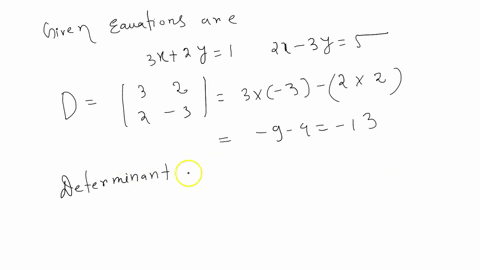 Given Equations are
3x+2y=1 2x-3y=5
D = | 3 2 | = 3x(-3)-(2 x 2)
| 2 -3 |
= -9-4=-13
Determinant